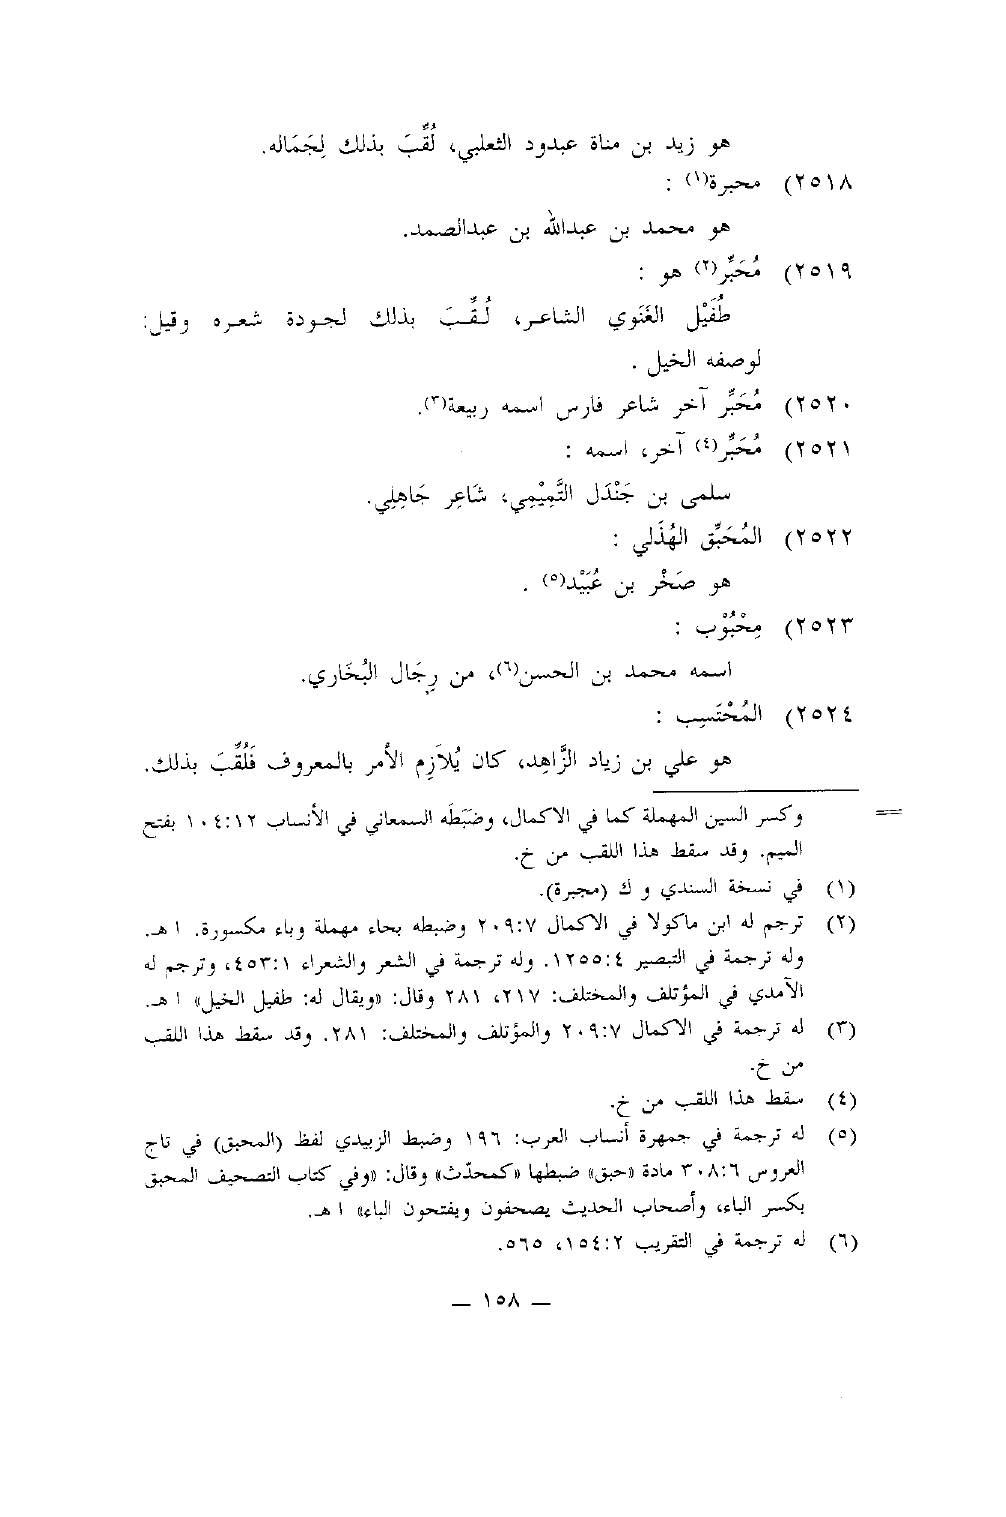 هو زيد بن مناة عبدود الثعلبي، لُقِّبَ بذلك لِجَمَاله.
٢٥١٨) محبرة(١) :
هو محمد بن عبدالله بن عبدالصمد.
٢٥١٩) مُحَبِّر(٢) هو :
طُفَيْل الغَنَوي الشاعر، لُقِّبَ بذلك لجودة شعره وقيل:
لوصفه الخيل .
٢٥٢٠) مُحَبِّر آخر شاعر فارس اسمه ربيعة(٣).
٢٥٢١) مُحَبِّر(٤) آخر، اسمه :
سلمى بن جَنْدَل التَّمِيْمِي، شَاعِر جَاهِلِي.
٢٥٢٢) المُحَبِّق الهُذَلي :
هو صَخْر بن عُبَيْد(٥) .
٢٥٢٣) مِحْبُوْب :
اسمه محمد بن الحسن(٦)، من رِجَال البُخَاري.
٢٥٢٤) المُحْتَسِب :
هو علي بن زياد الزَّاهِد، كان يُلاَزِم الأمر بالمعروف فَلُقِّبَ بذلك.
== وكسر السين المهملة كما في الاكمال، وضَبَطَه السمعاني في الأنساب ١٠٤:١٢ بفتح
الميم. وقد سقط هذا اللقب من خ.
(١) في نسخة السندي و ك (مجبرة).
(٢) ترجم له ابن ماكولا في الاكمال ٢٠٩:٧ وضبطه بحاء مهملة وباء مكسورة. ا هـ.
وله ترجمة في التبصير ١٢٥٥:٤. وله ترجمة في الشعر والشعراء ٤٥٣:١، وترجم له
الآمدي في المؤتلف والمختلف: ٢١٧، ٢٨١ وقال: «ويقال له: طفيل الخيل» ا هـ.
(٣) له ترجمة في الاكمال ٢٠٩:٧ والمؤتلف والمختلف: ٢٨١. وقد سقط هذا اللقب
من خ.
(٤) سقط هذا اللقب من خ.
(٥) له ترجمة في جمهرة أنساب العرب: ١٩٦ وضبط الزبيدي لفظ (المحبق) في تاج
العروس ٣٠٨:٦ مادة «حبق» ضبطها «كمحدّث» وقال: «وفي كتاب التصحيف المحبق
بكسر الباء، وأصحاب الحديث يصحفون ويفتحون الباء» ا هـ.
(٦) له ترجمة في التقريب ١٥٤:٢، ٥٦٥.
— ١٥٨ —